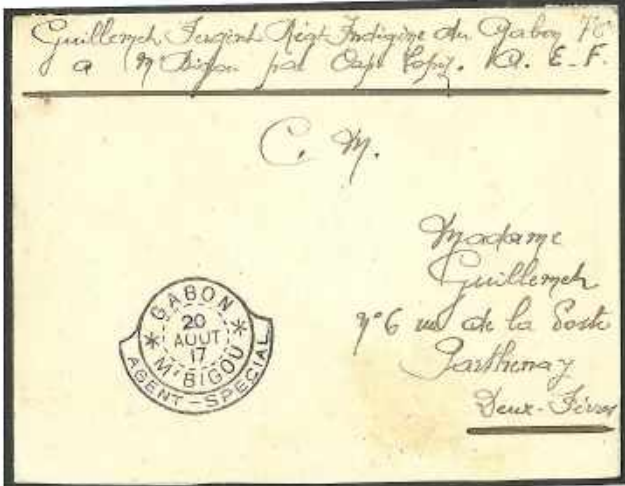 Guillemch Sergent Régt Indigène du Gabon
a M'Bigou par Cap Lopez. A. E. F.
C. M.
Madame
Guillemch
n°6 rue de la Poste
Parthenay
Deux-Sèvres
GABON
20
AOUT
17
M'BIGOU
AGENT-SPECIAL